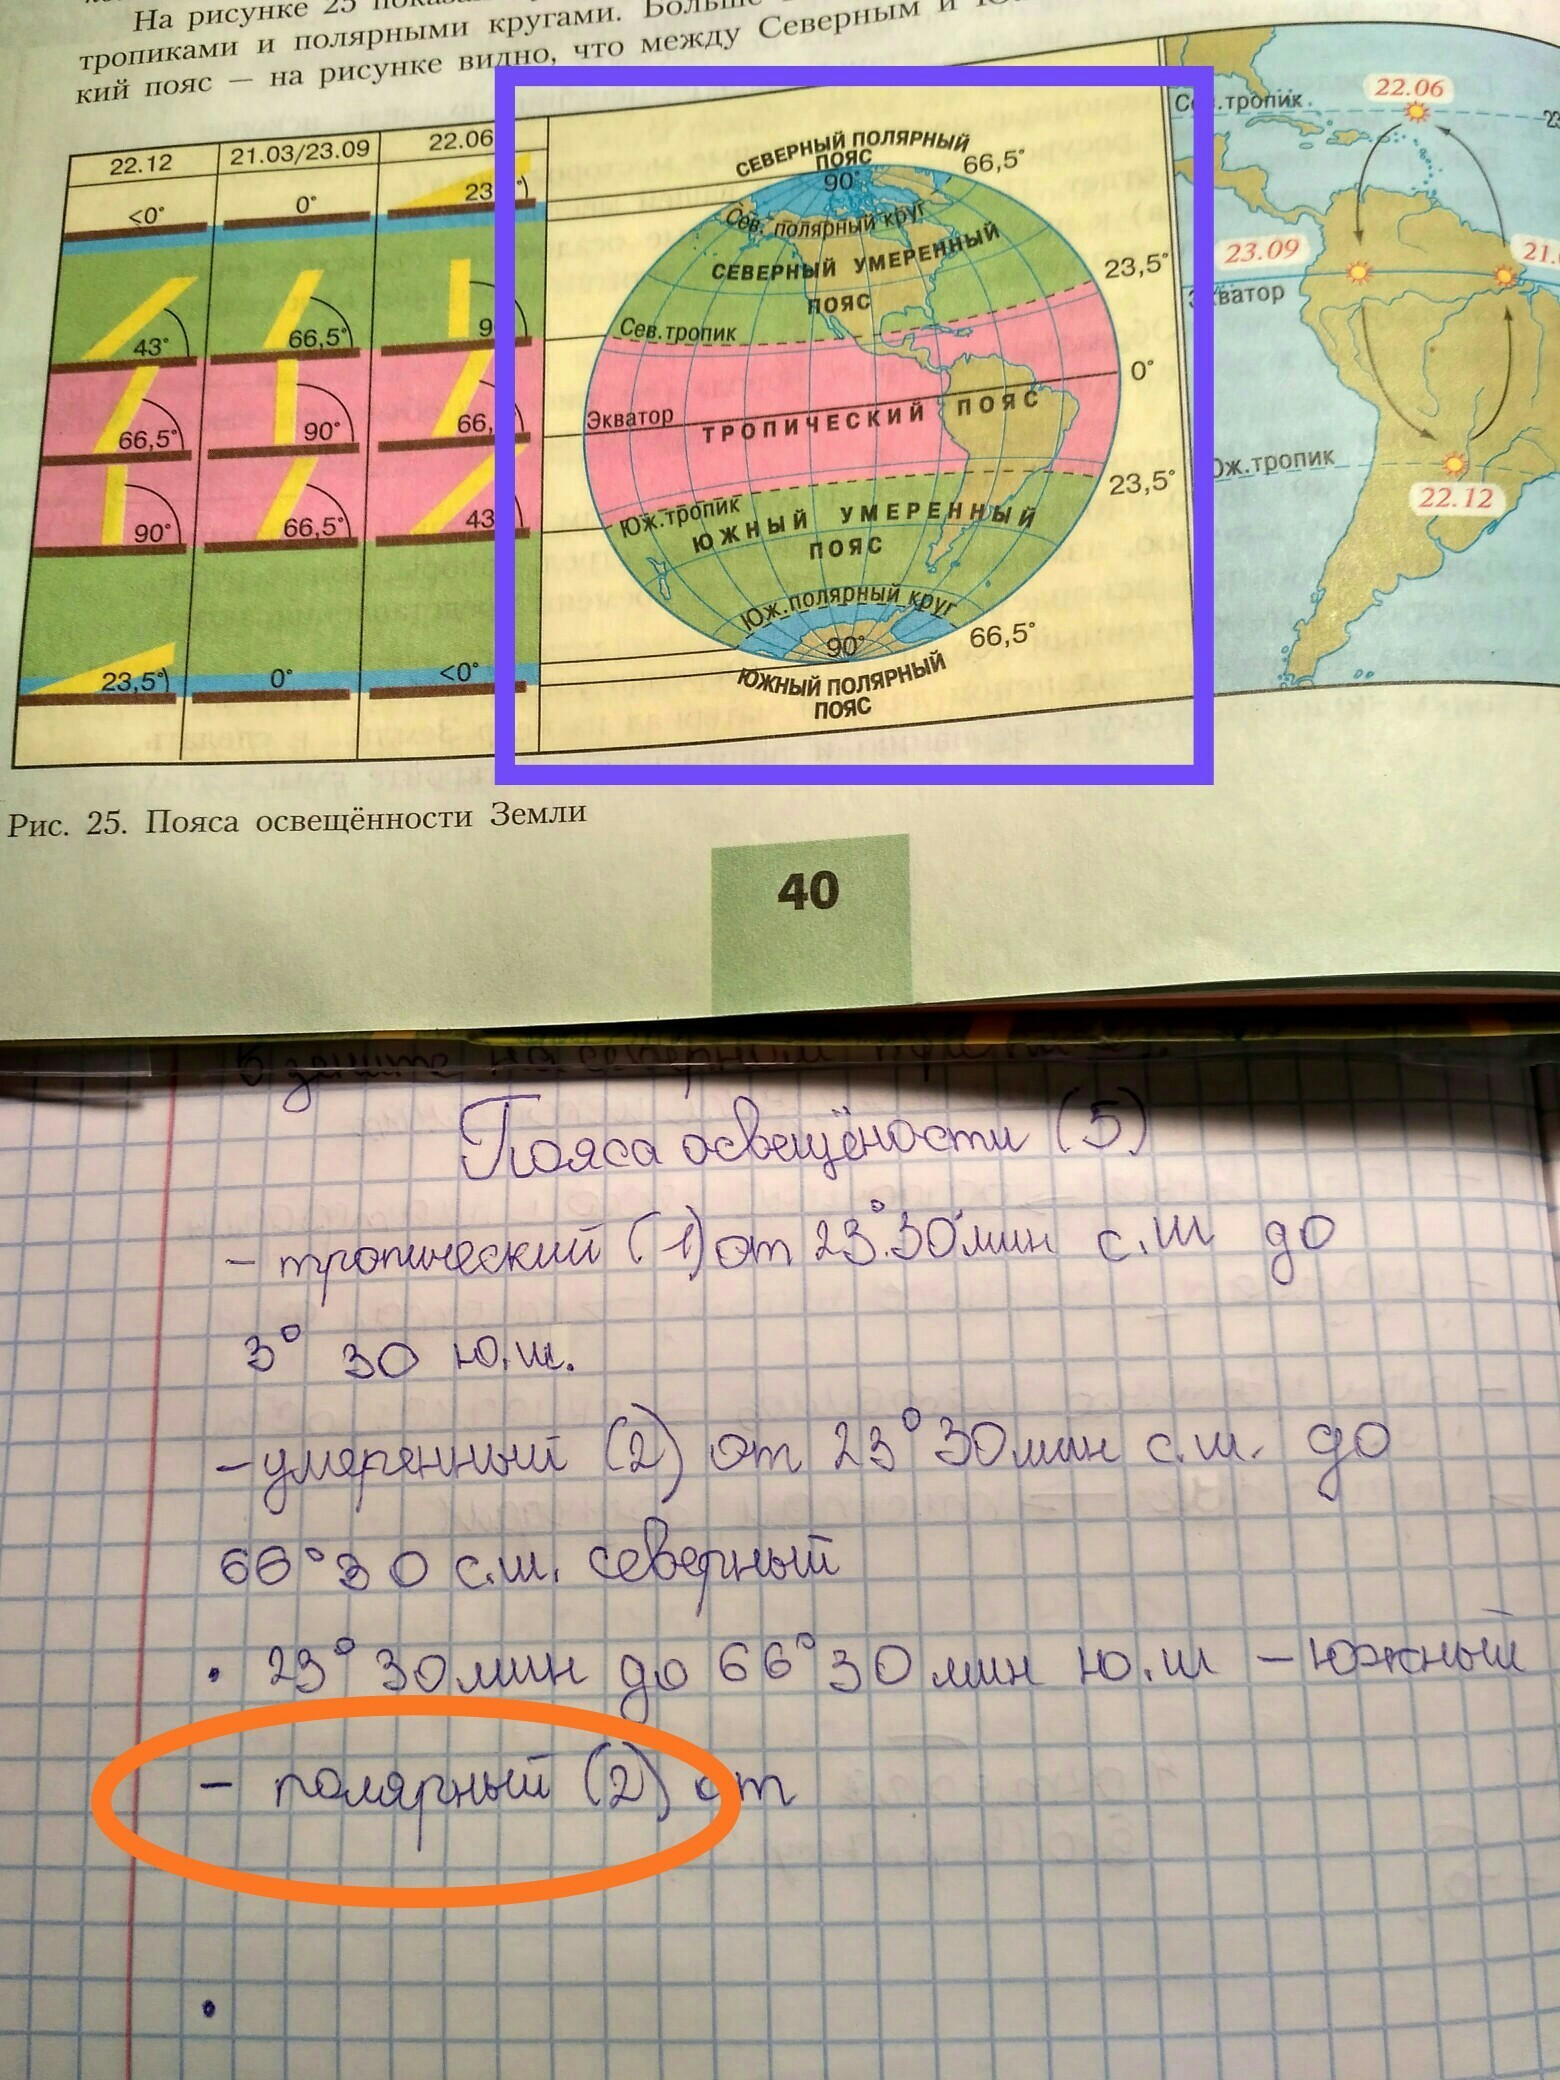 На рисунке 25
тропиками и полярными кругами. Больше
кий пояс — на рисунке видно, что между Северным и
22.12
21.03/23.09
22.06
<0°
0°
23
43°
66,5°
9
66,5°
90°
66,
90°
66,5°
43
23,5°
0°
<0°
СЕВЕРНЫЙ ПОЛЯРНЫЙ
ПОЯС
90°
66,5°
Сев. полярный круг
СЕВЕРНЫЙ УМЕРЕННЫЙ
ПОЯС
23,5°
Сев.тропик
0°
Экватор
ТРОПИЧЕСКИЙ ПОЯС
23,5°
Юж.тропик
ЮЖНЫЙ УМЕРЕННЫЙ
ПОЯС
Юж.полярный круг
90°
66,5°
ЮЖНЫЙ ПОЛЯРНЫЙ
ПОЯС
Сев.тропик
22.06
23
23.09
21.
Экватор
Юж.тропик
22.12
Рис. 25. Пояса освещённости Земли
40
Пояса освещёности (5)
- тропический (1) от 23°30 мин с.ш до
3° 30 ю.ш.
- умеренный (2) от 23°30 мин с.ш. до
66°30 с.ш. северный
• 23°30 мин до 66°30 мин ю.ш - южный
- полярный (2) от